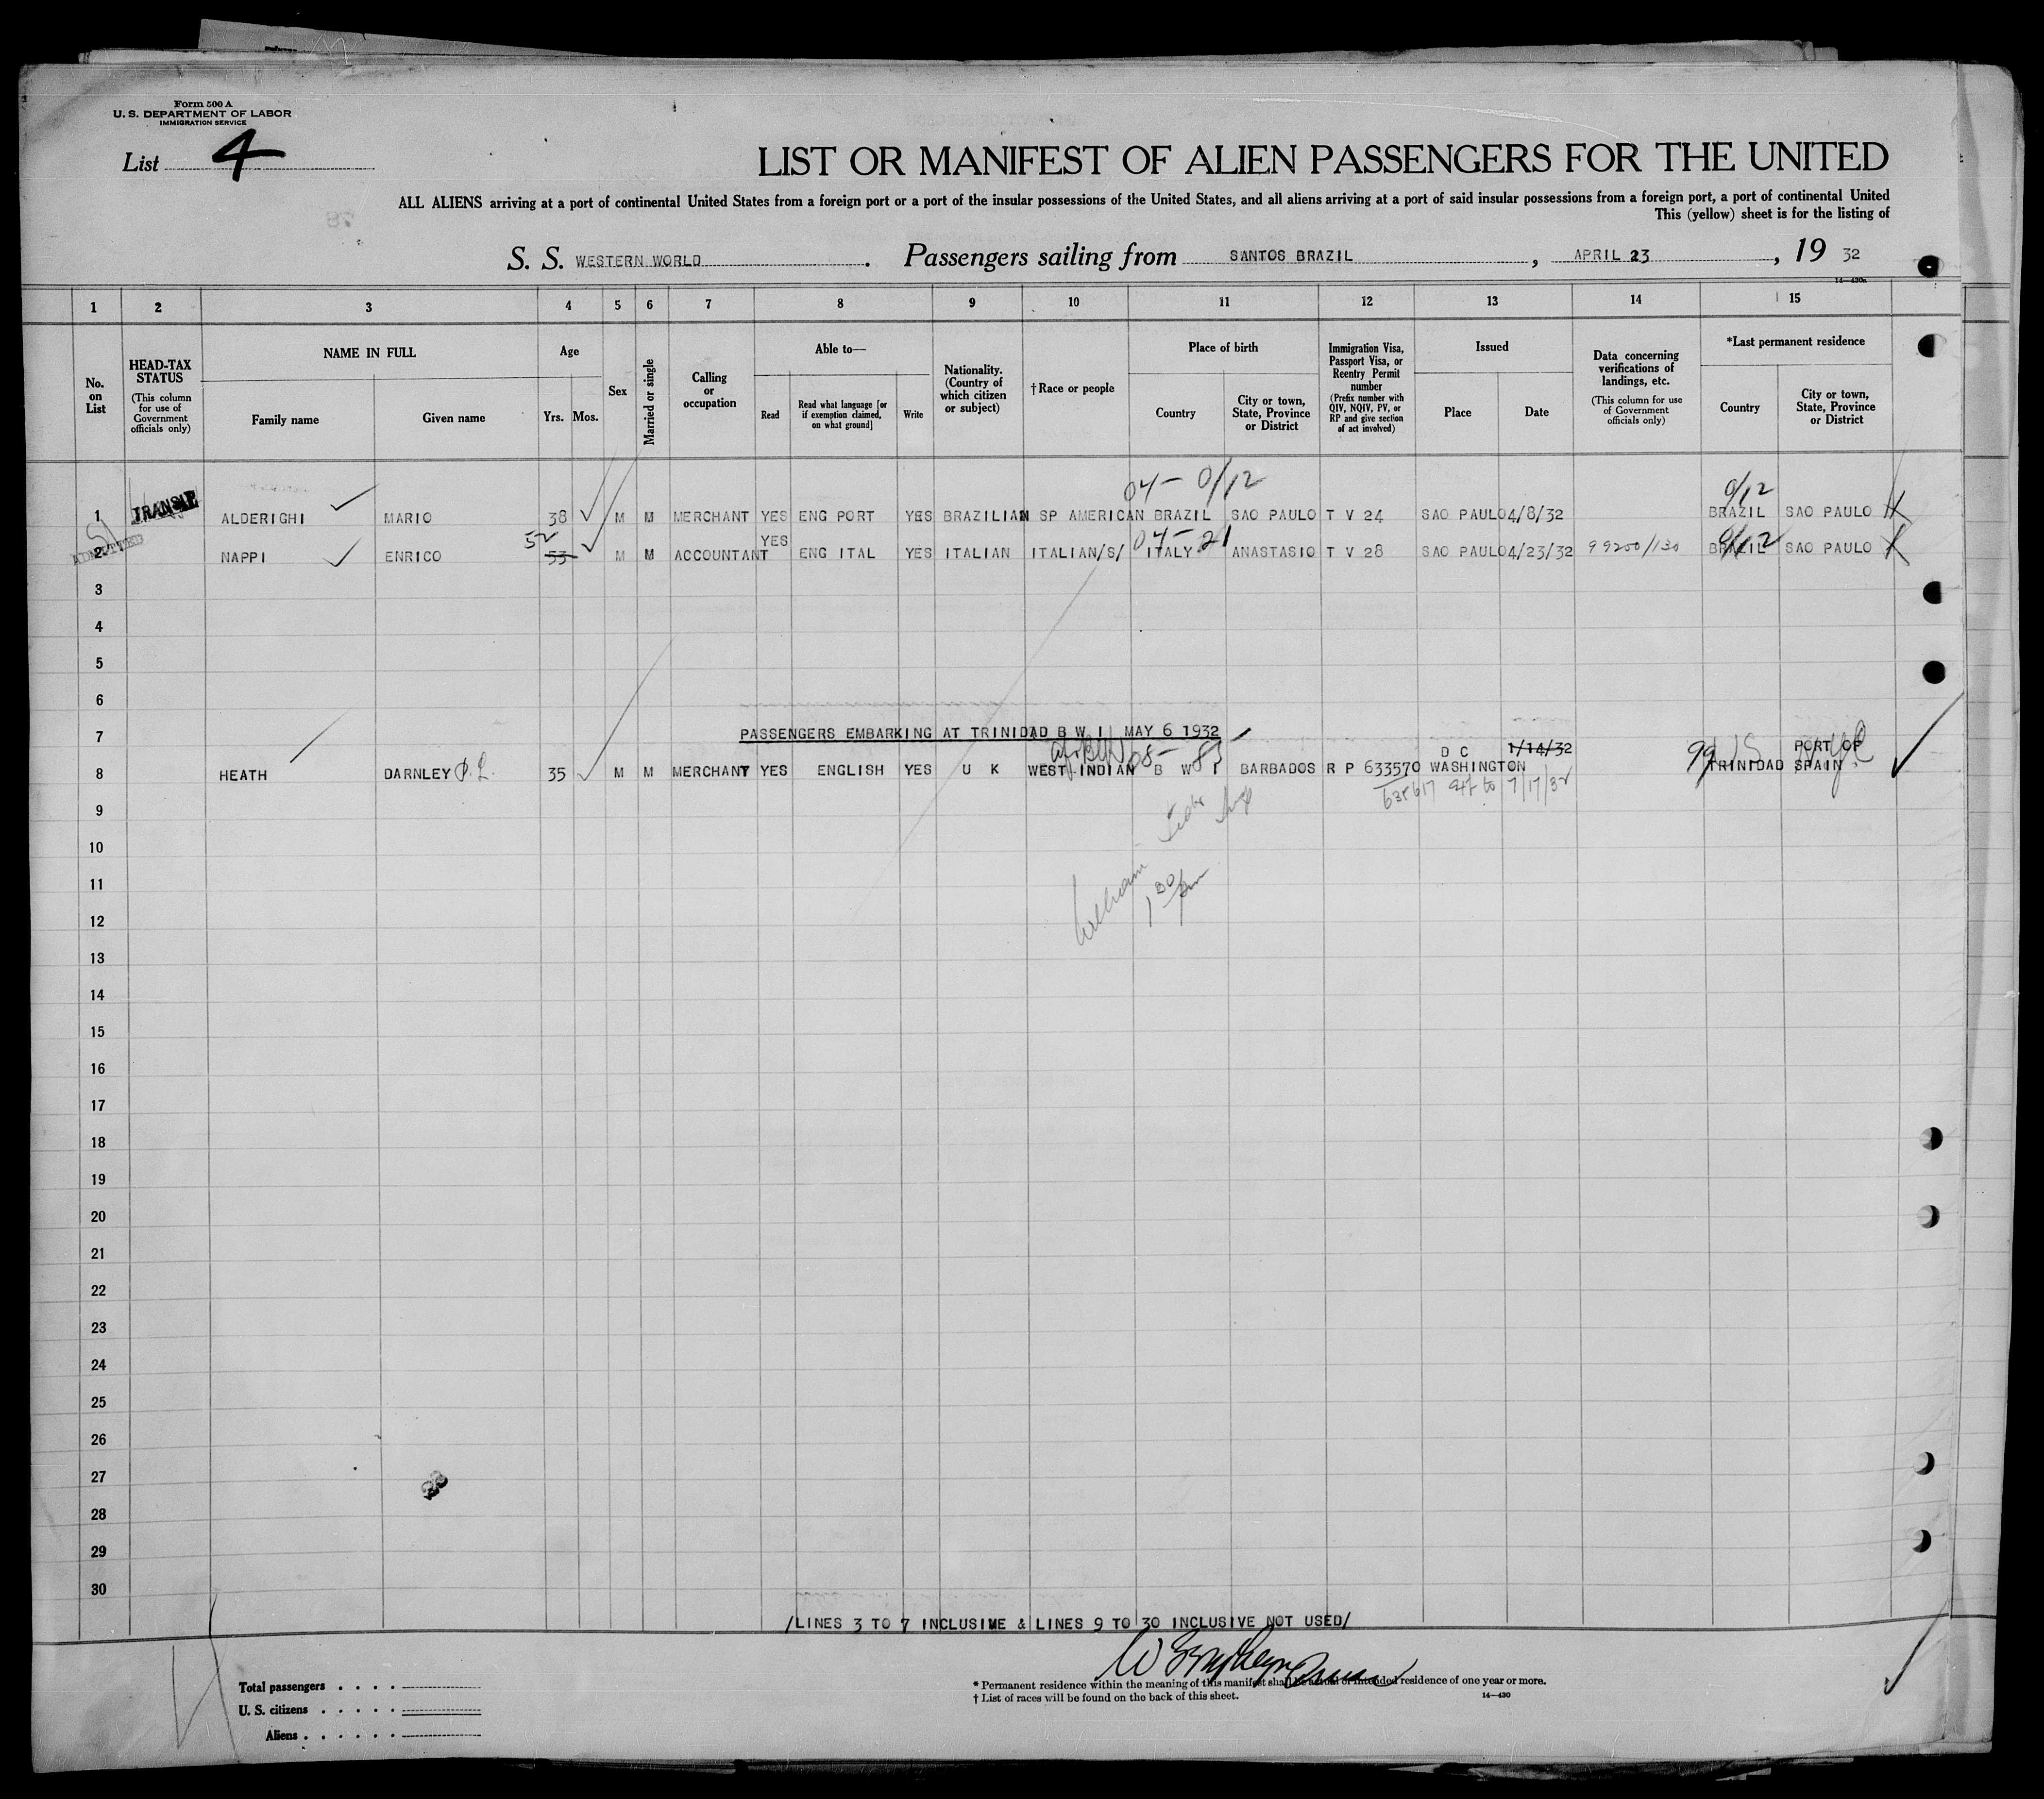 Form 500 A
U. S. DEPARTMENT OF LABOR
IMMIGRATION SERVICE
List 4
LIST OR MANIFEST OF ALIEN PASSENGERS FOR THE UNITED
ALL ALIENS arriving at a port of continental United States from a foreign port or a port of the insular possessions of the United States, and all aliens arriving at a port of said insular possessions from a foreign port, a port of continental United
This (yellow) sheet is for the listing of
S. S. WESTERN WORLD . Passengers sailing from SANTOS BRAZIL , APRIL 23 , 19 32
14—430a
1 2 3 4 5 6 7 8 9 10 11 12 13 14 15
No. on List
HEAD-TAX STATUS (This column for use of Government officials only)
NAME IN FULL
Family name Given name
Age
Yrs. Mos.
Sex
Married or single
Calling or occupation
Able to—
Read Read what language [or if exemption claimed, on what ground] Write
Nationality. (Country of which citizen or subject)
†Race or people
Place of birth
Country City or town, State, Province or District
Immigration Visa, Passport Visa, or Reentry Permit number (Prefix number with QIV, NQIV, PV, or RP and give section of act involved)
Issued
Place Date
Data concerning verifications of landings, etc. (This column for use of Government officials only)
*Last permanent residence
Country City or town, State, Province or District
04- 0/12 0/12
1 TRANSIT ALDERIGHI MARIO 38 M M MERCHANT YES ENG PORT YES BRAZILIAN SP AMERICAN BRAZIL SAO PAULO T V 24 SAO PAULO 4/8/32 BRAZIL SAO PAULO
52 YES 04-21 0/12
2 ADMITTED NAPPI ENRICO 53 M M ACCOUNTANT ENG ITAL YES ITALIAN ITALIAN/S/ ITALY ANASTASIO T V 28 SAO PAULO 4/23/32 99200/130 BRAZIL SAO PAULO
3
4
5
6
7 PASSENGERS EMBARKING AT TRINIDAD B W I MAY 6 1932
08- 85 D C 1/14/32 99 US PORT OF
8 HEATH DARNLEY 35 M M MERCHANT YES ENGLISH YES U K WEST INDIAN B W I BARBADOS R P 633570 WASHINGTON TRINIDAD SPAIN
to 7/17/32
9
10
11
William
1 30 pm
12
13
14
15
16
17
18
19
20
21
22
23
24
25
26
27
28
29
30
/LINES 3 TO 7 INCLUSIVE & LINES 9 TO 30 INCLUSIVE NOT USED/
Total passengers . . . .
U. S. citizens . . . . .
Aliens . . . . . .
* Permanent residence within the meaning of this manifest shall be actual or intended residence of one year or more.
† List of races will be found on the back of this sheet. 14—430